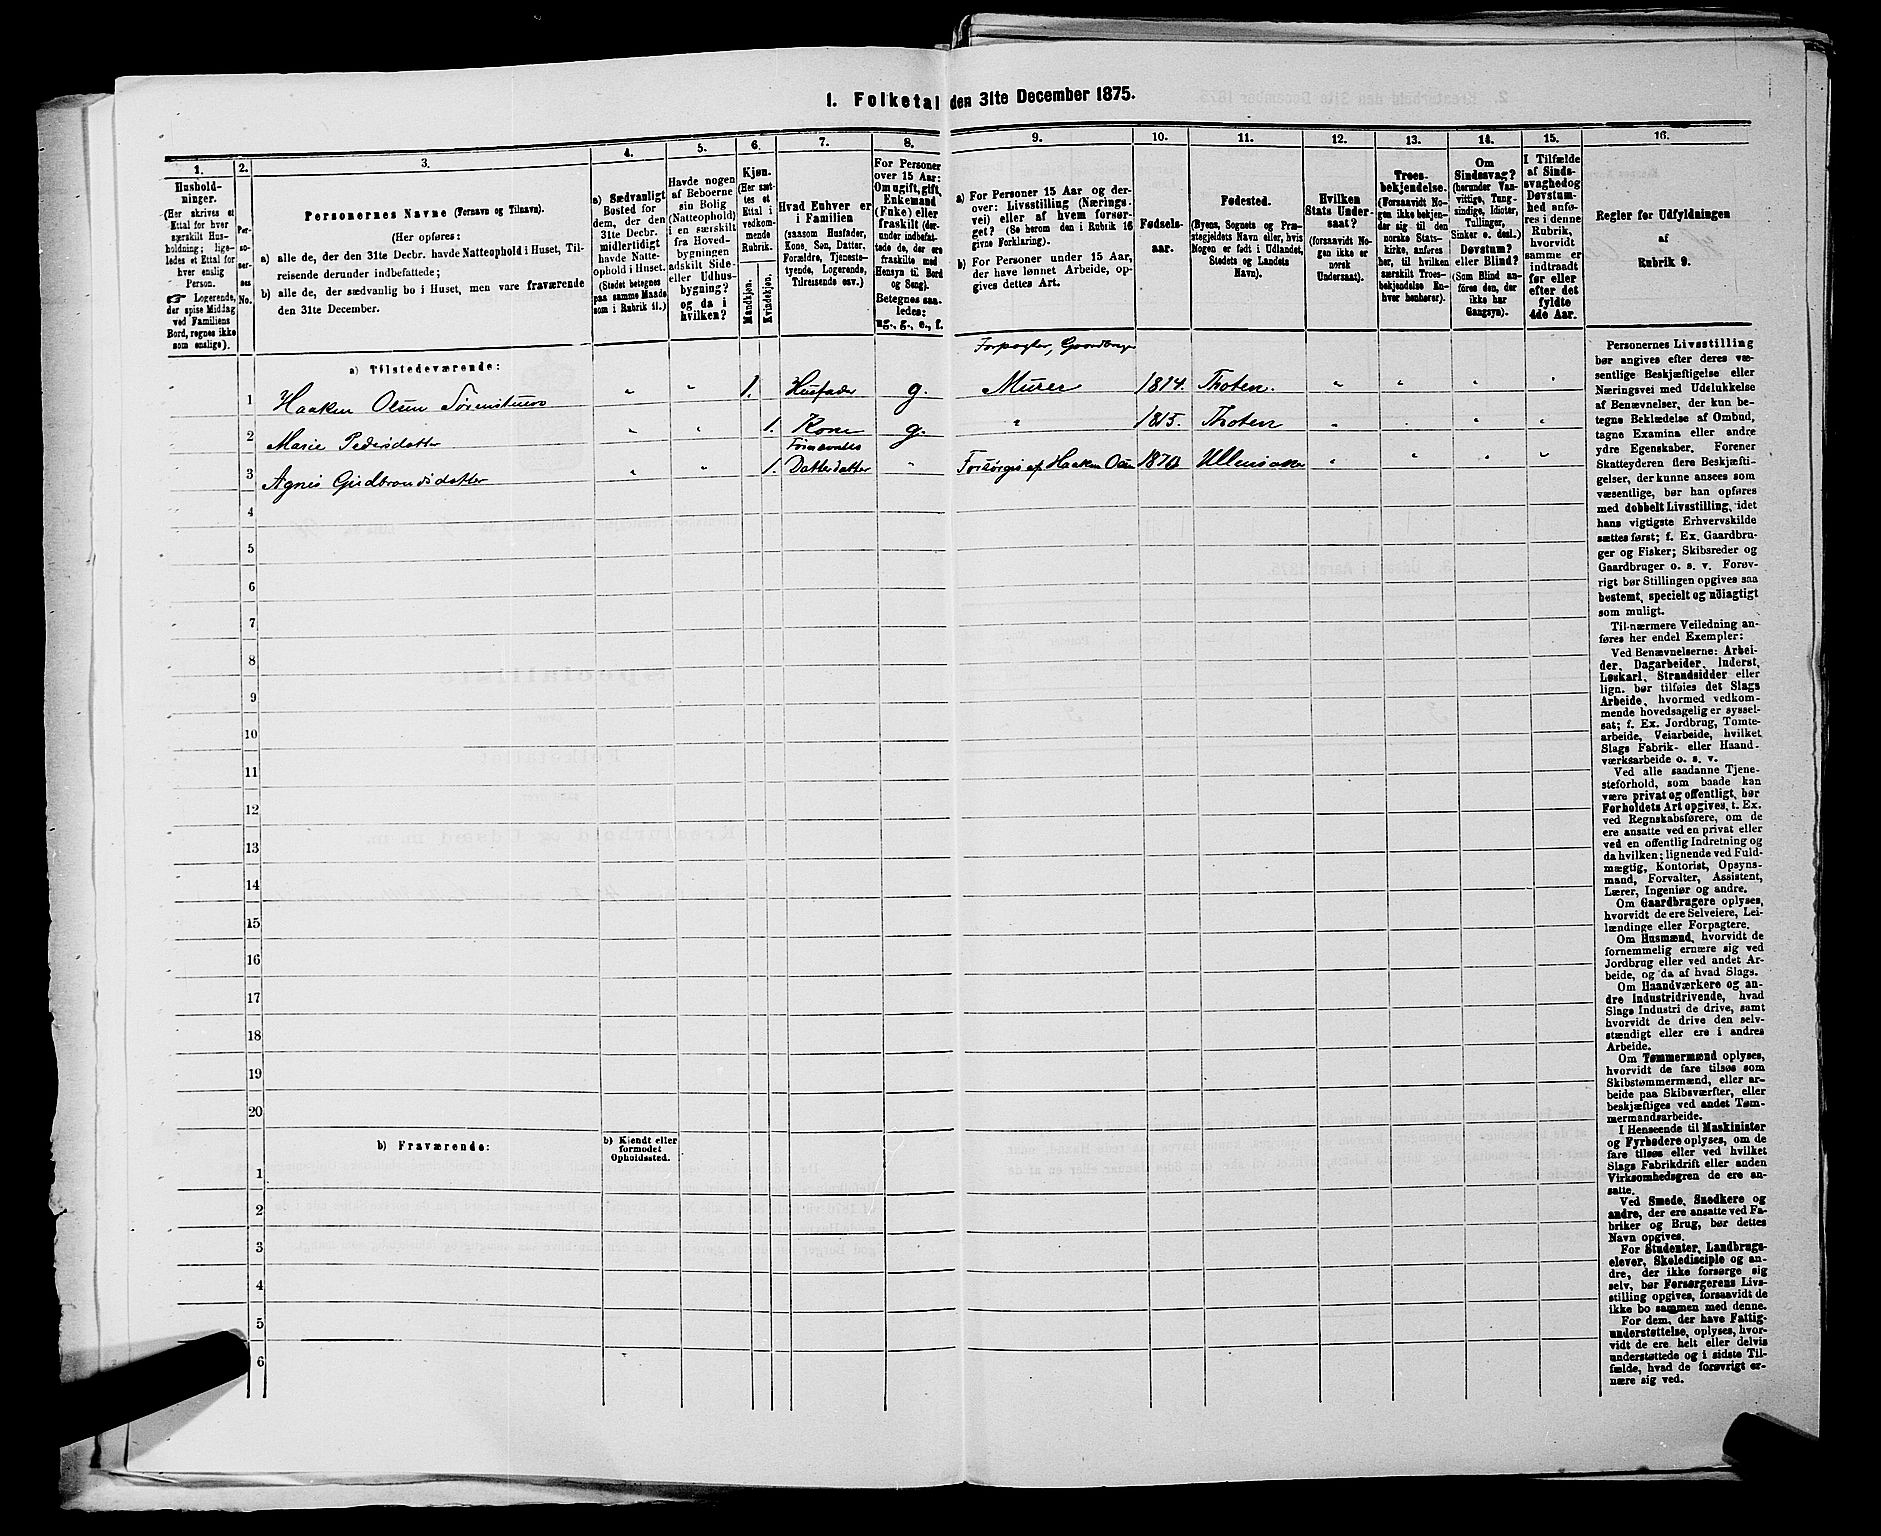 1. Folketal den 31te December 1875.
1.
2.
3.
4.
5.
6.
7.
8.
9.
10.
11.
12.
13.
14.
15.
16.
Hushold-
ninger.
(Her skrives et
Ettal for hver
særskilt Hus-
holdning; lige-
ledes et Ettal for
hver enslig
Person.
☞ Logerende,
der spise Middag
ved Familiens
Bord, regnes ikke
som enslige).
Per-
so-
ner-
nes
No.
Personernes Navne (Fornavn og Tilnavn).
(Her opføres:
a) alle de, der den 31te Decbr. havde Natteophold i Huset, Til-
reisende derunder indbefattede;
b) alle de, der sædvanlig bo i Huset, men vare fraværende
den 31te December.
a) Sædvanligt
Bosted for
dem, der den
31te Decbr.
midlertidigt
havde Natte-
ophold i Huset.
(Stedet betegnes
paa samme Maade
som i Rubrik 11.)
Havde nogen
af Beboerne
sin Bolig
(Natteophold)
i en særskilt
fra Hoved-
bygningen
adskilt Side-
eller Udhus-
bygning?
og da i
hvilken?
Kjøn.
(Her sæt-
tes et
Ettal i
vedkom-
mende
Rubrik.
Mandkjøn.
Kvindekjøn.
Hvad Enhver er
i Familien
(saasom Husfader,
Kone, Søn, Datter,
Forældre, Tjeneste-
tyende, Logerende,
Tilreisende osv.)
For Personer
over 15 Aar:
Om ugift, gift,
Enkemand
(Enke) eller
fraskilt (der-
under indbefat-
tede de, der ere
fraskilte med
Hensyn til Bord
og Seng).
Betegnes saa-
ledes:
ug., g., e., f.
a) For Personer 15 Aar og der-
over: Livsstilling (Nærings-
vei) eller af hvem forsør-
get? (Se herom den i Rubrik 16
givne Forklaring).
b) For Personer under 15 Aar,
der have lønnet Arbeide, op-
gives dettes Art.
Fødsels-
aar.
Fødested.
(Byens, Sognets og Præ-
stegjeldets Navn eller, hvis
Nogen er født i Udlandet,
Stedets og Landets
Navn).
Hvilken
Stats Under-
saat?
(forsaavidt No-
gen ikke er
norsk
Undersaat).
Troes-
bekjendelse.
(Forsaavidt No-
gen ikke bekjen-
der sig til den
norske Stats-
kirke, anføres
her, til hvilken
særskilt Troes-
bekjendelse En-
hver henhører).
Om
Sindssvag?
(herunder Van-
vittige, Tung-
sindige, Idioter,
Tullinger,
Sinker o. desl.)
Døvstum?
eller Blind?
(Som Blind an-
føres den, der
ikke har
Gangsyn).
I Tilfælde
af Sinds-
svaghed og
Døvstum-
hed anfø-
res i denne
Rubrik,
hvorvidt
samme er
indtraadt
før eller
efter det
fyldte
4de Aar.
Regler for Udfyldningen
af
Rubrik 9.
a) Tilstedeværende:
Forpagter, Gaardbruger
1 Haaken Olsen „ „ 1. Husfader g. Murer 1814. Thoten. „ „ „ „
2 Marie Pedersdatter „ „ 1. Kone g. „ 1815. Thoten „ „ „ „
3 Agnis Gudbrandsdatter „ „ 1. Datterdatter „ Forsørges af Haaken Olsen 1870 Ullensaker „ „ „ „
4
5
6
7
8
9
10
11
12
13
14
15
16
17
18
19
20
b) Fraværende:
b) Kjendt eller
formodet
Opholdssted.
1
2
3
4
5
6
Personernes Livsstilling
bør angives efter deres væ-
sentlige Beskjæftigelse eller
Næringsvei med Udelukkelse
af Benævnelser, der kun be-
tegne Beklædelse af Ombud,
tagne Examina eller andre
ydre Egenskaber. Forener
Skatteyderen flere Beskjæfti-
gelser, der kunne ansees som
væsentlige, bør han opføres
med dobbelt Livsstilling, idet
hans vigtigste Erhvervskilde
sættes først; f. Ex. Gaardbru-
ger og Fisker; Skibsreder og
Gaardbruger o. s. v. Forøv-
rigt bør Stillingen opgives saa
bestemt, specielt og nöiagtigt
som muligt.
Til nærmere Veiledning an-
føres her endel Exempler:
Ved Benævnelserne: Arbei-
der, Dagarbeider, Inderst,
Løskarl, Strandsidder eller
lign. bør tilføies det Slags
Arbeide, hvormed vedkom-
mende hovedsagelig er syssel-
sat; f. Ex. Jordbrug, Tomte-
arbeide, Veiarbeide, hvilket
Slags Fabrik- eller Haand-
værksarbeide o. s. v.
Ved alle saadanne Tjene-
steforhold, som baade kan
være privat og offentligt, bør
Forholdets Art opgives, t. Ex.
ved Regnskabsførere, om de
ere ansatte ved en privat eller
ved en offentlig Indretning og
da hvilken; lignende ved Fuld-
mægtig, Kontorist, Opsyns-
mand, Forvalter, Assistent,
Lærer, Ingeniør og andre.
Om Gaardbrugere oplyses,
hvorvidt de ere Selveiere, Lei-
lændinge eller Forpagtere.
Om Husmænd, hvorvidt de
fornemmelig ernære sig ved
Jordbrug eller ved andet Ar-
beide, og da af hvad Slags.
Om Haandværkere og an-
dre Industridrivende, hvad
Slags Industri de drive, samt
hvorvidt de drive den selv-
stændigt eller ere i andres
Arbeide.
Om Tømmermænd oplyses,
hvorvidt de fare tilsøs som
Skibstømmermænd, eller ar-
beide paa Skibsværfter, eller
beskjæftiges ved andet Tøm-
mermandsarbeide.
I Henseende til Maskinister
og Fyrbødere oplyses, om de
fare tilsøs eller ved hvilket
Slags Fabrikdrift eller anden
Virksomhedsgren de ere an-
satte.
Ved Smede, Snedkere og
andre, der ere ansatte ved Fa-
briker og Brug, bør dettes
Navn opgives.
For Studenter, Landbrugs-
elever, Skoledisciple og an-
dre, der ikke forsørge sig
selv, bør Forsørgerens Livs-
stilling opgives, forsaavidt de
ikke bo sammen med denne.
For dem, der have Fattig-
understøttelse, oplyses, hvor-
vidt de ere helt eller delvis
understøttede og i sidste Til-
fælde, hvad de forøvrigt er-
nære sig ved.